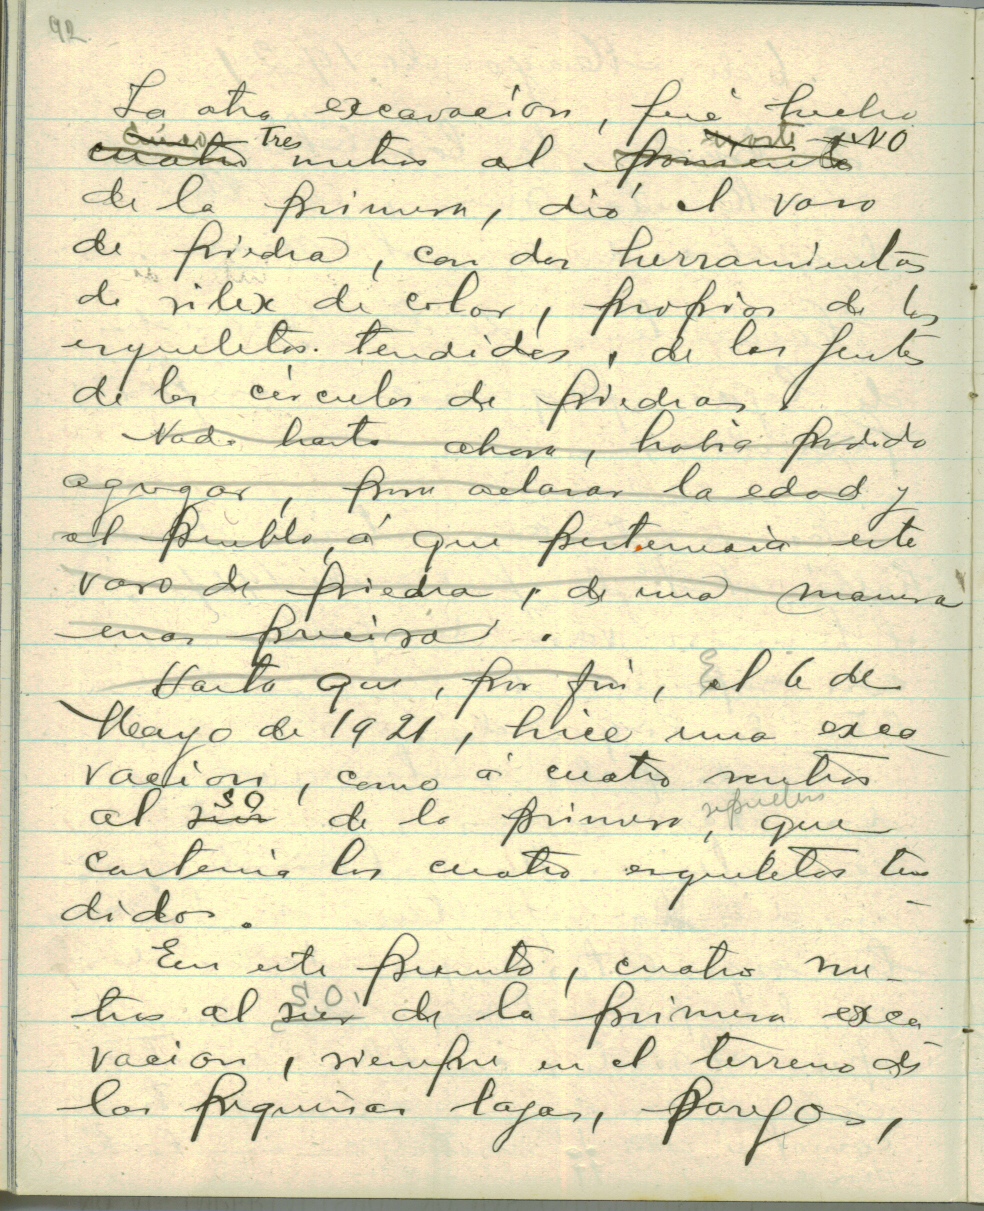 92
La otra excavación, fué hecha
cuatro cinco Tres metros al poniente norte NO
de la primera, dió el vaso
de piedra, con dos herramientas
de silex de color, propios de los
esqueletos tendidos, de las jentes
de los círculos de piedras.
Nada hasta ahora, habia podido
agregar, para aclarar la edad y
el pueblo, á que pertenecia este
vaso de piedra, de una manera
mas precisa.
Hasta que, por fin, el 6 de
Mayo de 1921, hice una exca
vacion, como á cuatro metros
al sur SO de la primera sepultura, que
contenia los cuatro esqueletos ten
didos.
En este punto, cuatro me-
tros al sur SO de la primera exca
vacion, siempre en el terreno de
las pequeñas lajas,